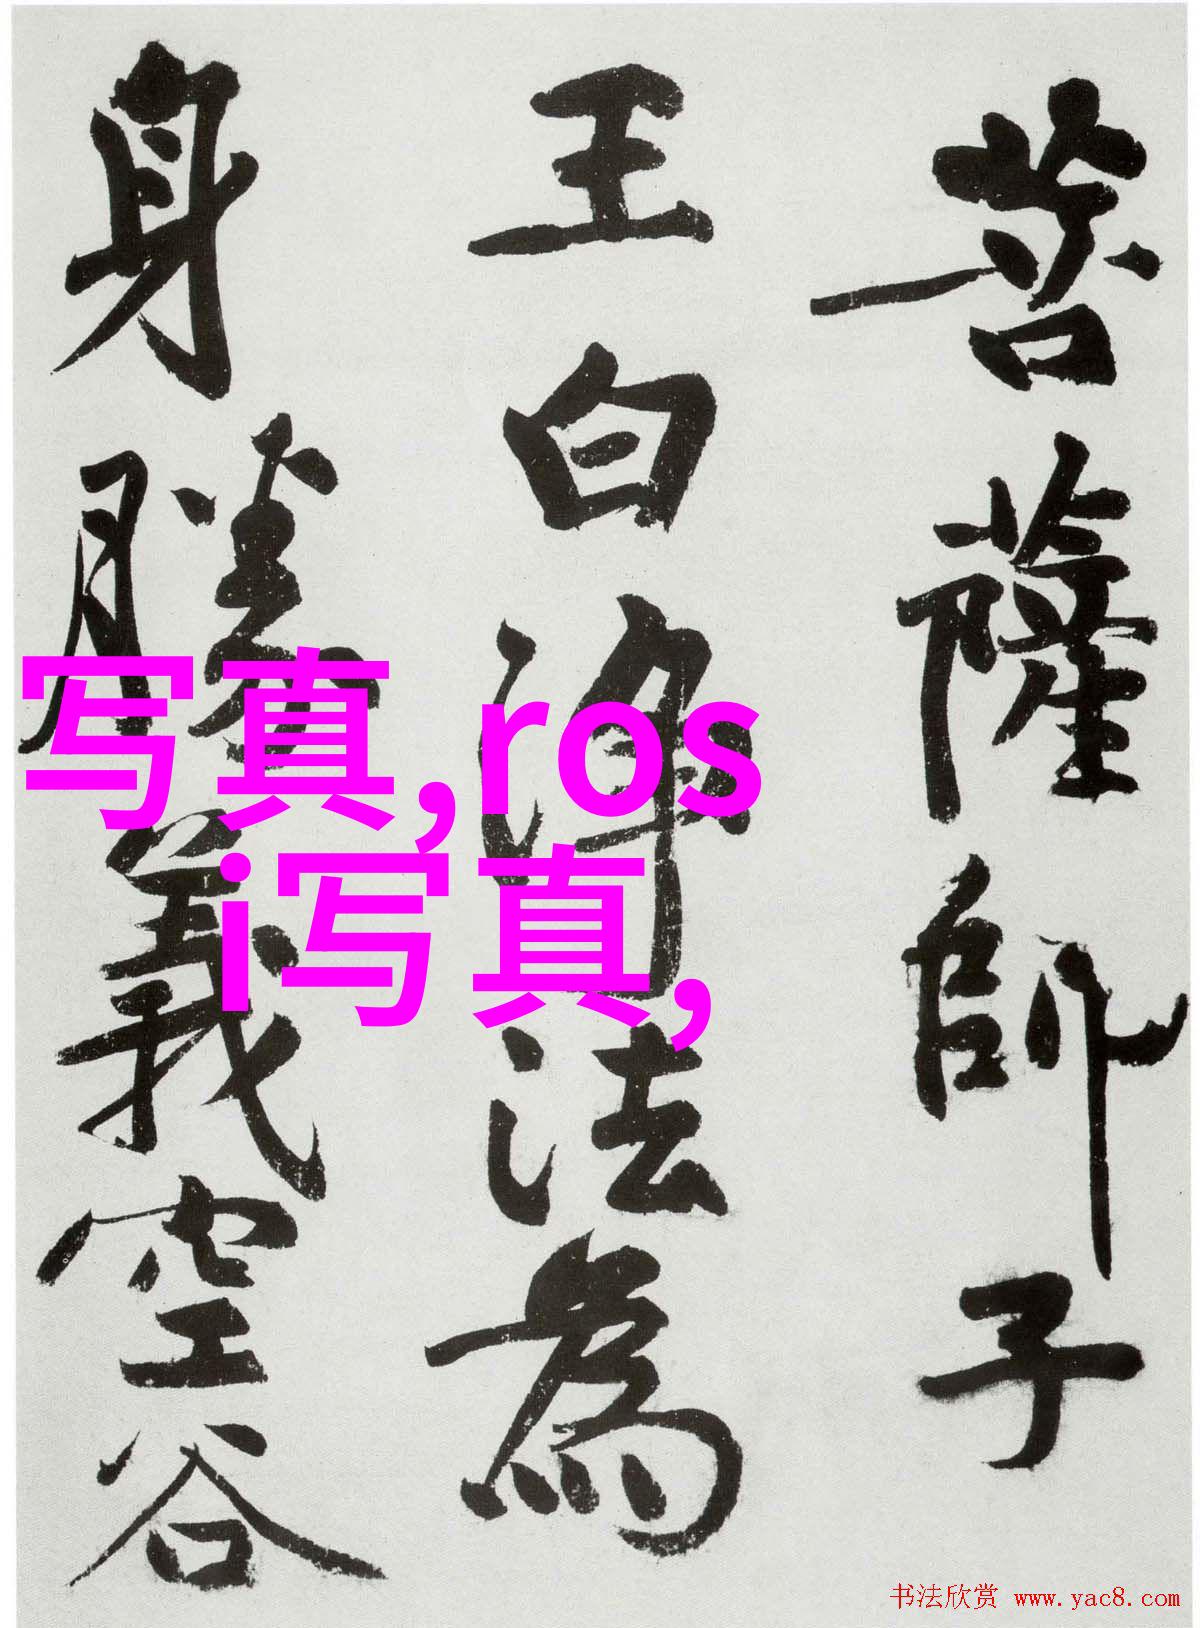 菩薩師子
王白淨法為
身勝義空谷
写真,ros
i写真,
书法欣赏 www.yac8.com